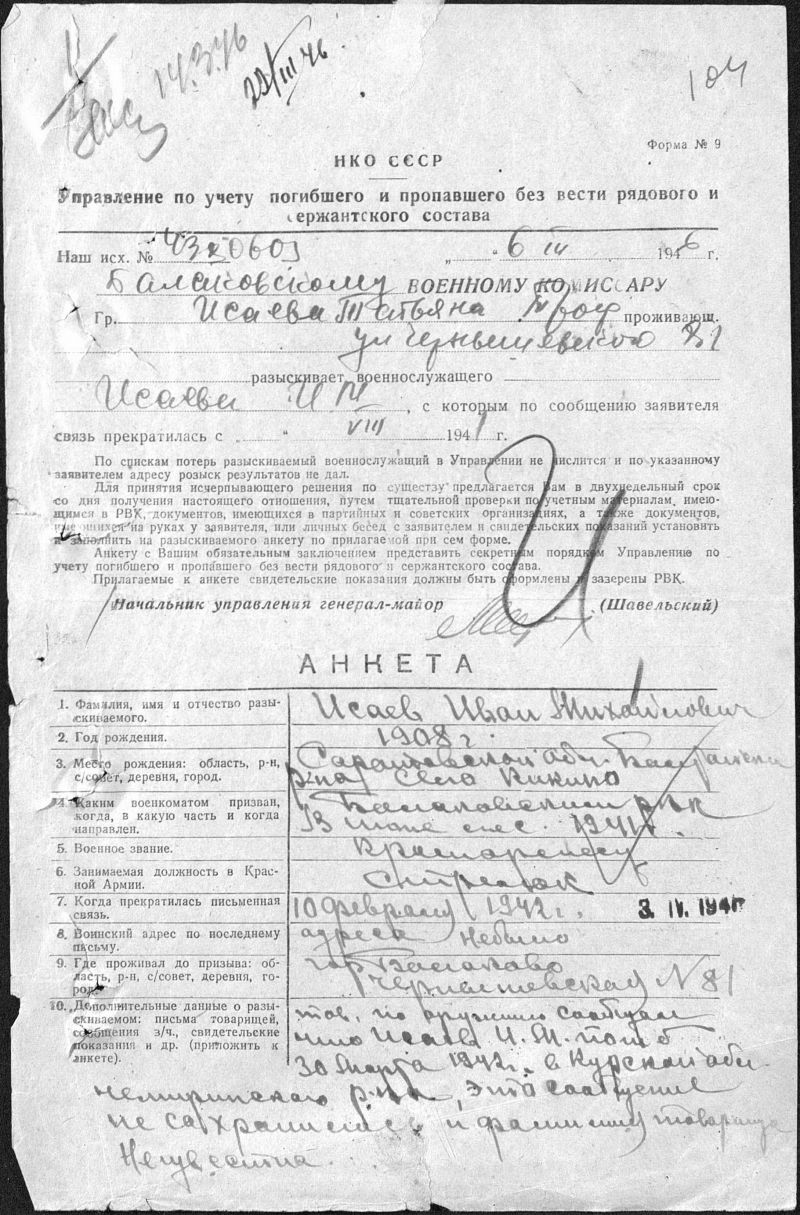 14.3.46
23/III 46
104
Форма № 9
НКО СССР
Управление по учету погибшего и пропавшего без вести рядового и
сержантского состава
Наш исх. № „ 6 III 1946 г.
Балаковскому ВОЕННОМУ КОМИССАРУ
Гр. Исаева Татьяна Троф проживающ.
ул Чернышевского 81
разыскивает военнослужащего
Исаева И М, с которым по сообщению заявителя
связь прекратилась с „ “ VIII 1941 г.
По спискам потерь разыскиваемый военнослужащий в Управлении не числится и по указанному
заявителем адресу розыск результатов не дал.
Для принятия исчерпывающего решения по существу предлагается Вам в двухнедельный срок
со дня получения настоящего отношения, путем тщательной проверки по учетным материалам, имею-
щимся в РВК, документов, имеющихся в партийных и советских организациях, а также документов,
имеющихся на руках у заявителя, или личных бесед с заявителем и свидетельских показаний установить
и заполнить на разыскиваемого анкету по прилагаемой при сем форме.
Анкету с Вашим обязательным заключением представить секретным порядком Управлению по
учету погибшего и пропавшего без вести рядового и сержантского состава.
Прилагаемые к анкете свидетельские показания должны быть оформлены и заверены РВК.
Начальник управления генерал-майор (Шавельский)
АНКЕТА
1. Фамилия, имя и отчество разы-
скиваемого.
Исаев Иван Михайлович
2. Год рождения.
1908 г.
3. Место рождения: область, р-н,
с/совет, деревня, город.
Саратовской обл.
р-на село Кикино
4. Каким военкоматом призван,
когда, в какую часть и когда
направлен.
Балаковским рвк
1941 г.
5. Военное звание.
Красноармеец
6. Занимаемая должность в Крас-
ной Армии.
Стрелок
7. Когда прекратилась письменная
связь.
10 февраля 1942 г. 3. IV. 1946
8. Воинский адрес по последнему
письму.
адреса небыло
9. Где проживал до призыва: об-
ласть, р-н, с/совет, деревня, го-
род.
гор Балаково
Чернышевская N 81
10. Дополнительные данные о разы-
скиваемом: письма товарищей,
сообщения з/ч., свидетельские
показания и др. (приложить к
анкете).
тов. по оружию сообщил
что Исаев И. М. погиб
30 марта 1942 г. в Курской обл.
р-на, это сообщение
не сохранилось и фамилия товарища
Неизвестна.